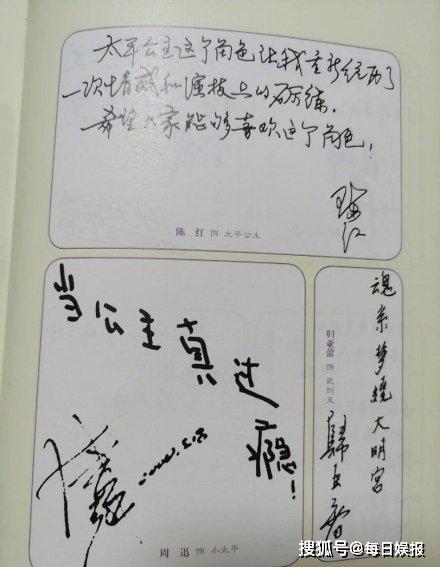 太平公主这个角色让我重新经历了
一次情感和演技上的磨练，
希望大家能够喜欢这个角色！
陈红
陈 红 饰 太平公主
当公主真过瘾！
周 迅 饰 小太平
魂系梦绕大明宫
归亚蕾 饰 武则天
歸亞蕾
搜狐号@每日娱报